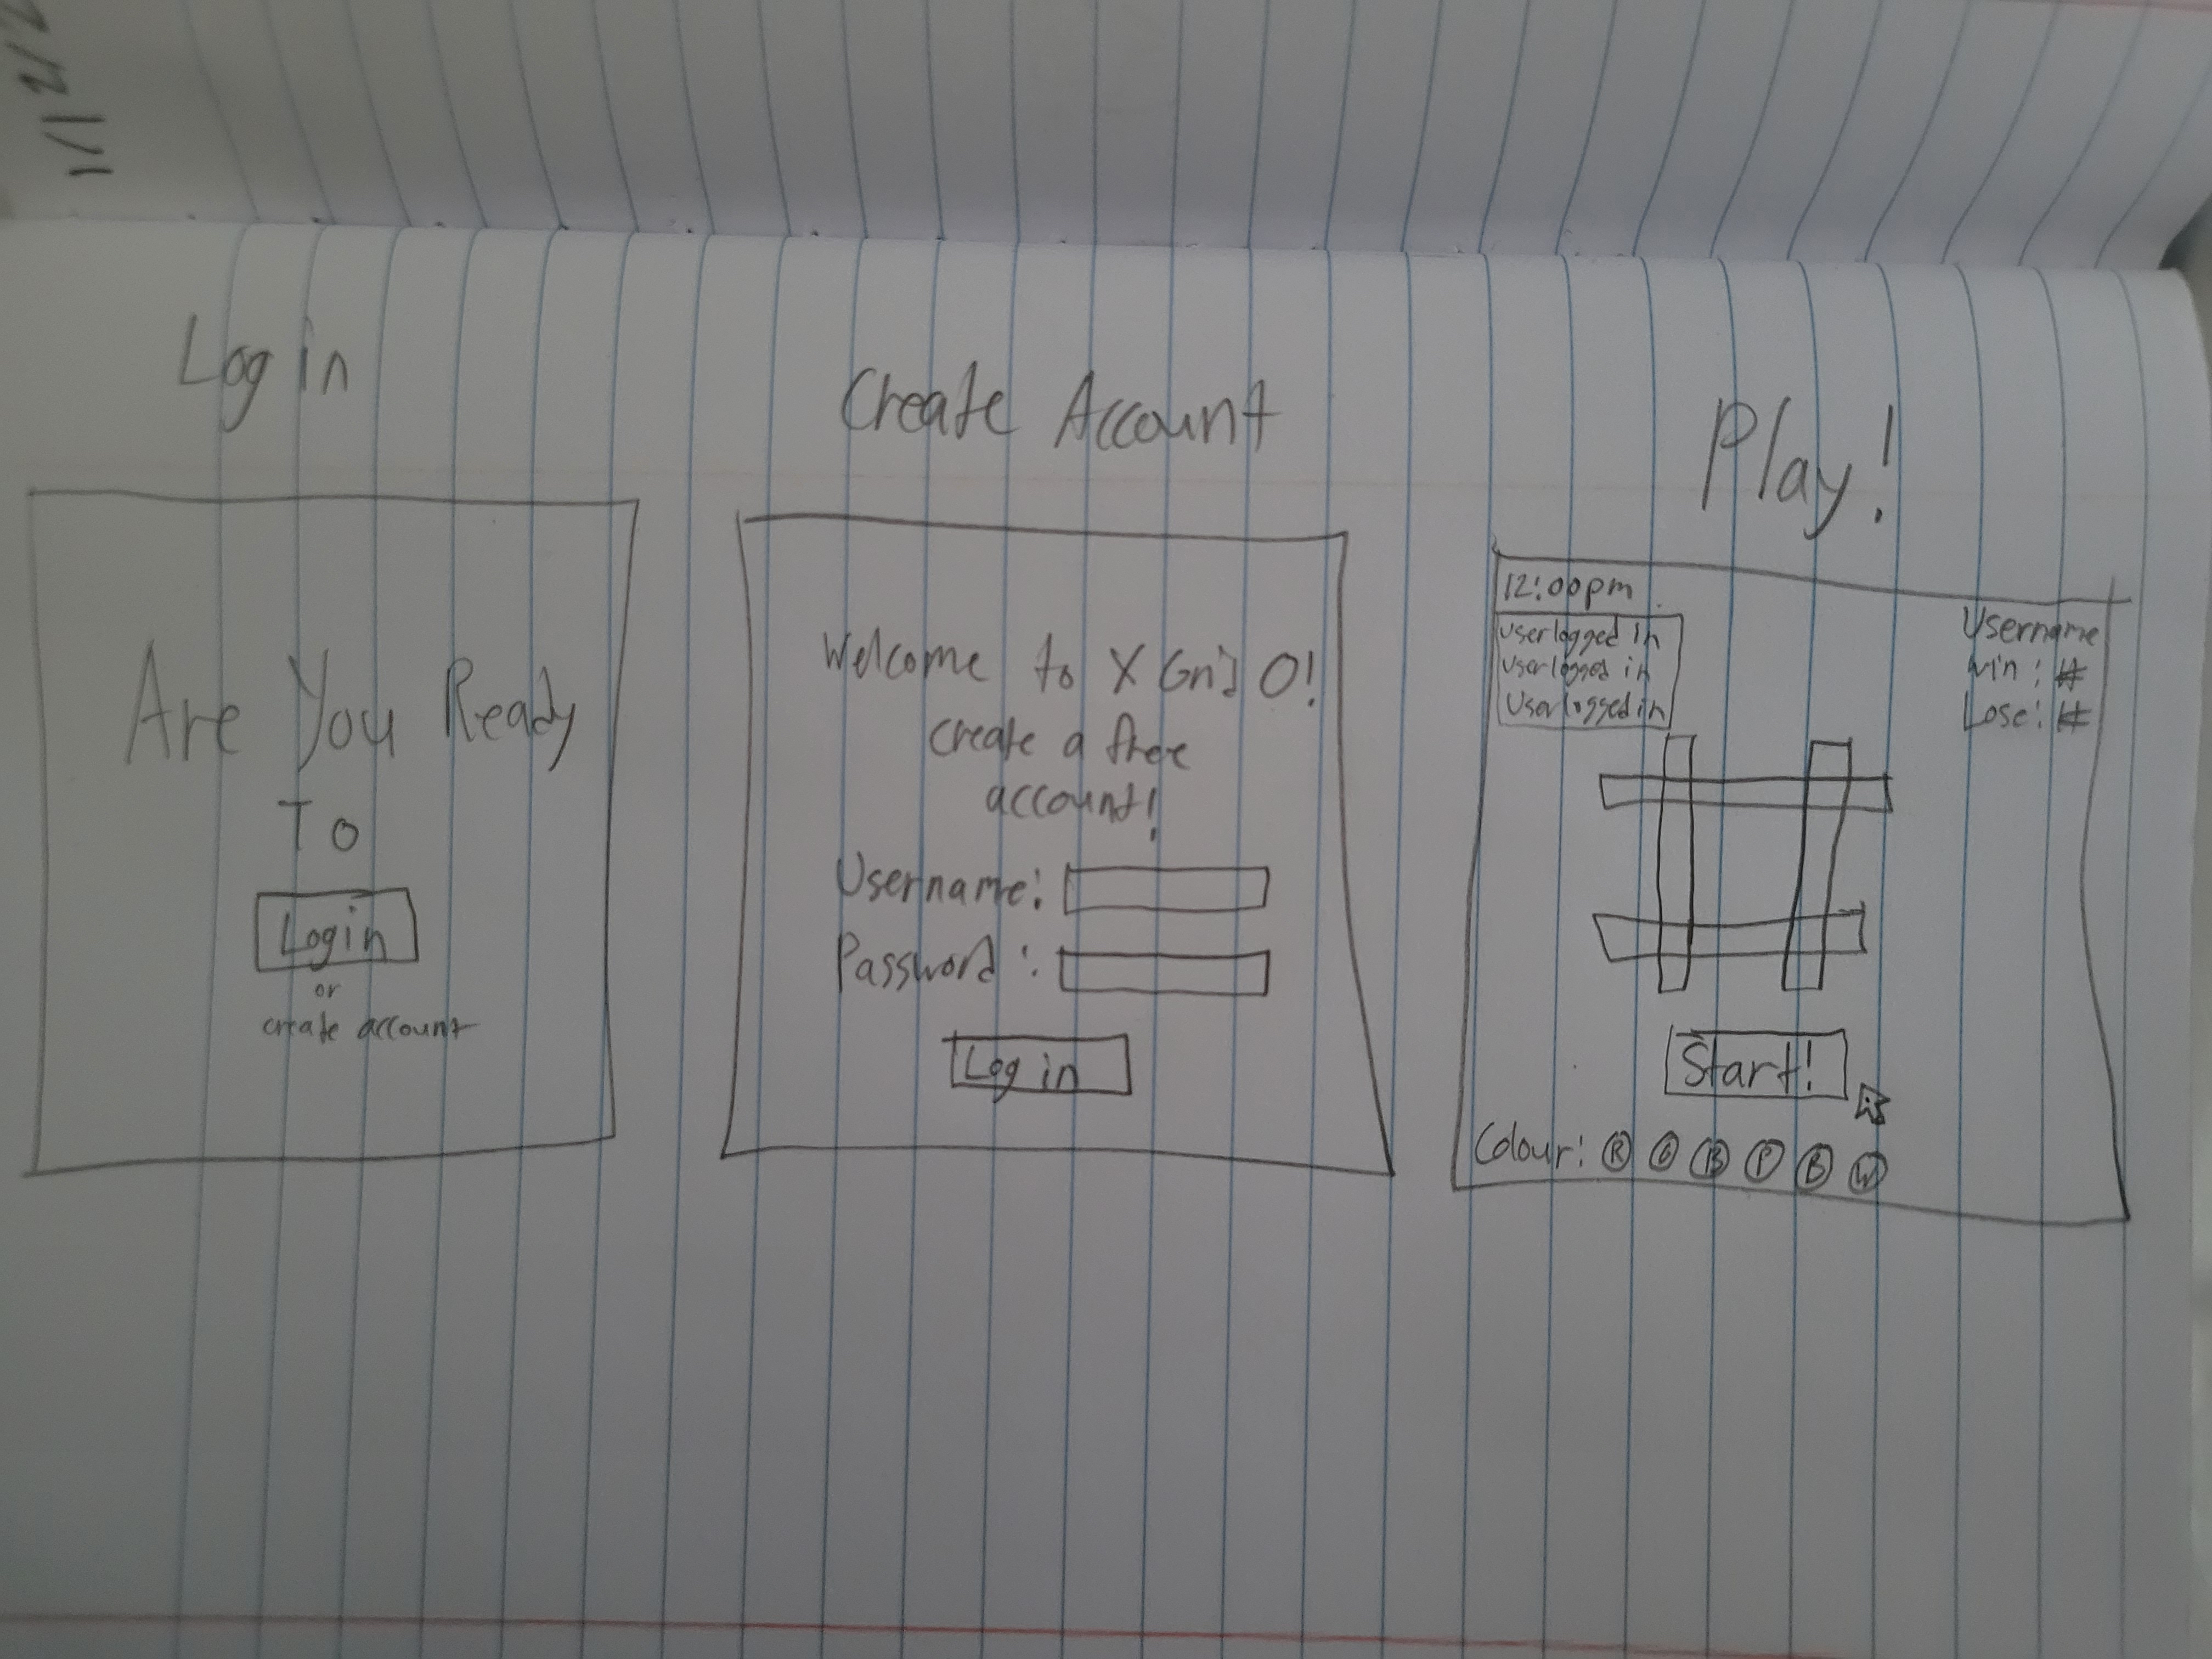 1/12/2
Log in
Are You Ready
To
Login
or
create account
Create Account
Welcome to X Grid O!
create a free
account!
Username:
Password:
Log in
Play!
12:00pm
user logged in
user logged in
User logged in
Username
win: #
Lose: #
Start!
Colour: R G B P B W